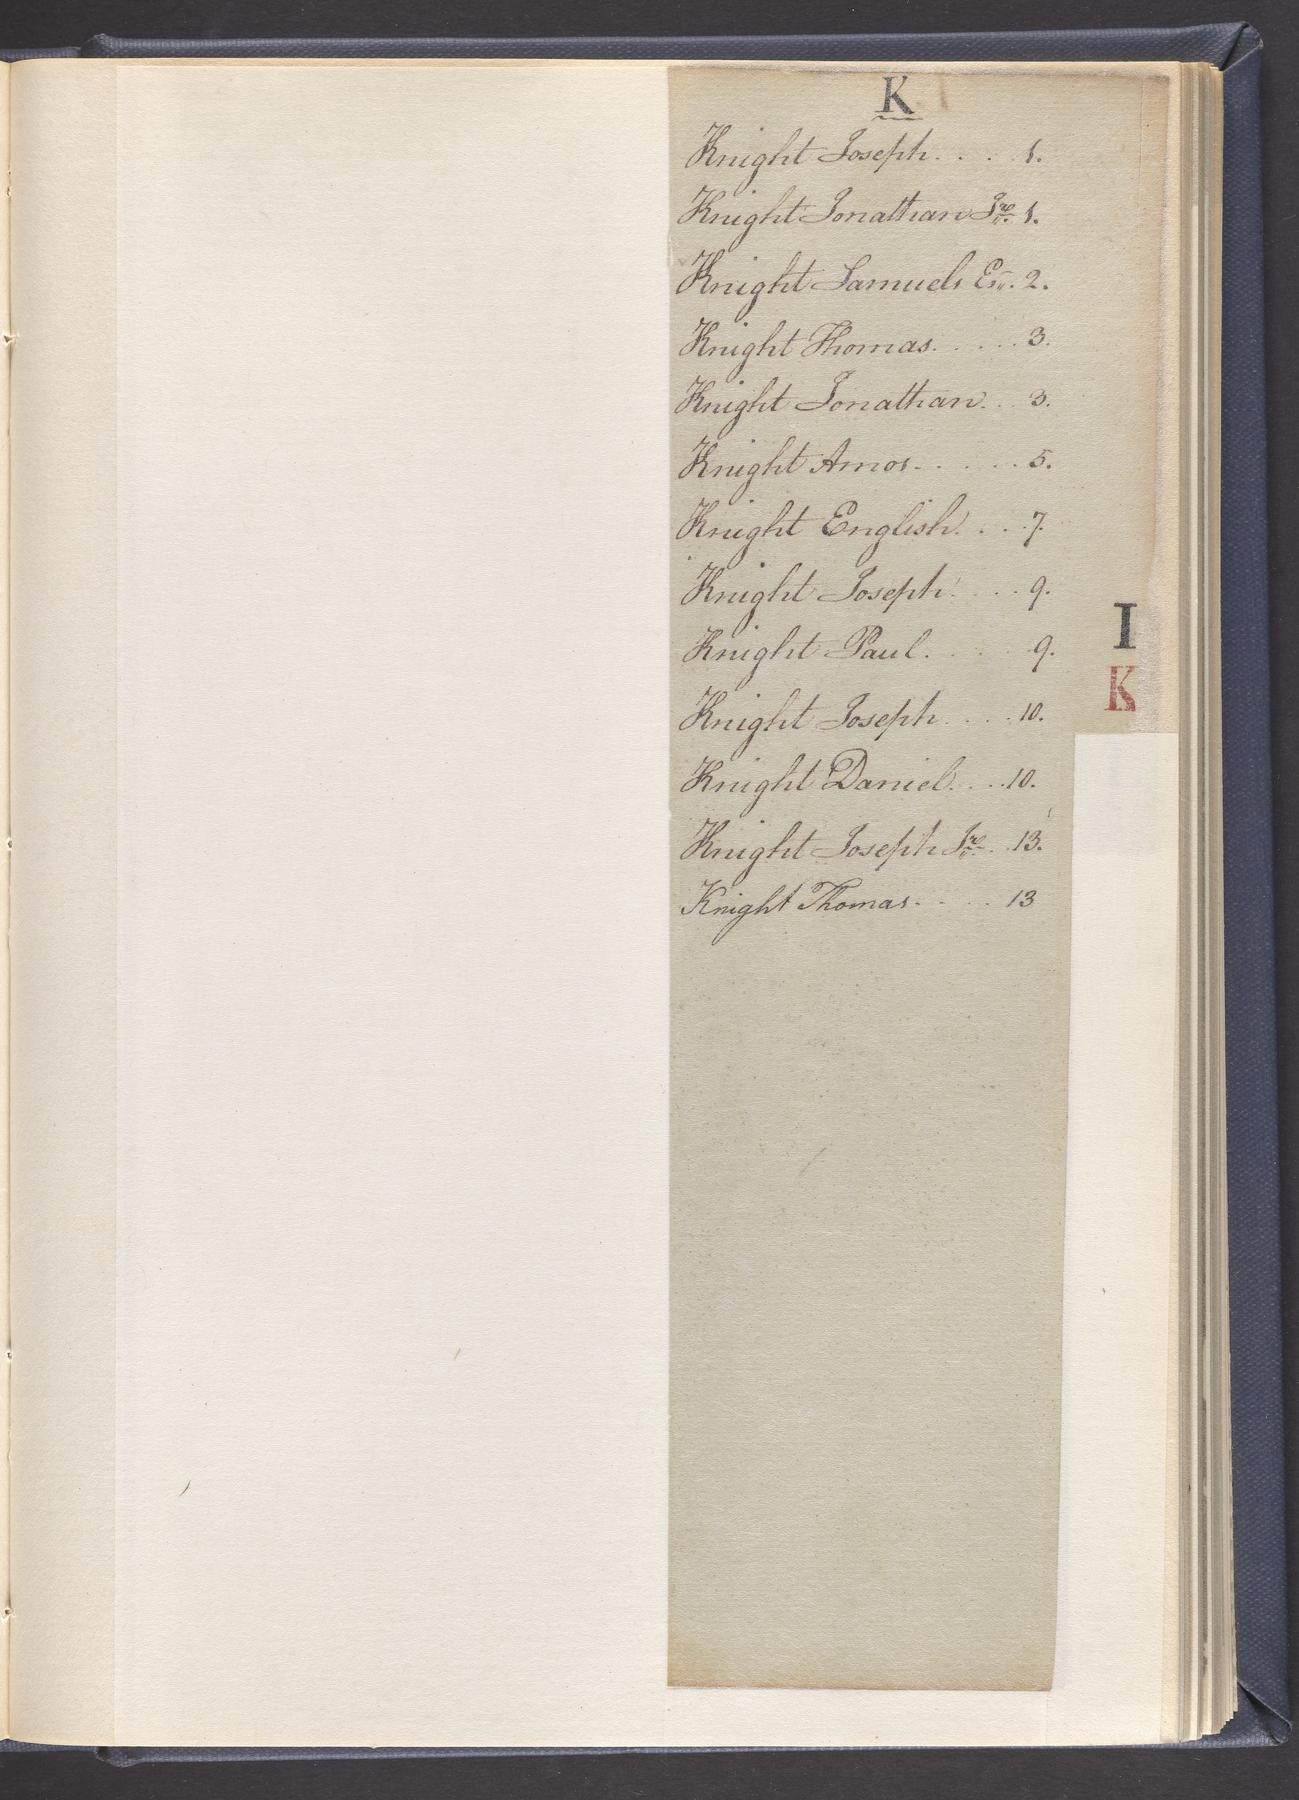 K
Knight Joseph. . . . 1.
Knight Jonathan Jre. 1.
Knight Samuels Es. 2.
Knight Thomas. . . . . 3.
Knight Jonathan. . . 3.
Knight Amos. . . . . . 5.
Knight English. . . . 7.
Knight Joseph. . . . 9.
Knight Paul. . . . . 9.
Knight Joseph. . . . 10.
Knight Daniel. . . . 10.
Knight Joseph Jre. . 13.
Knight Thomas. . . . . 13
I
K